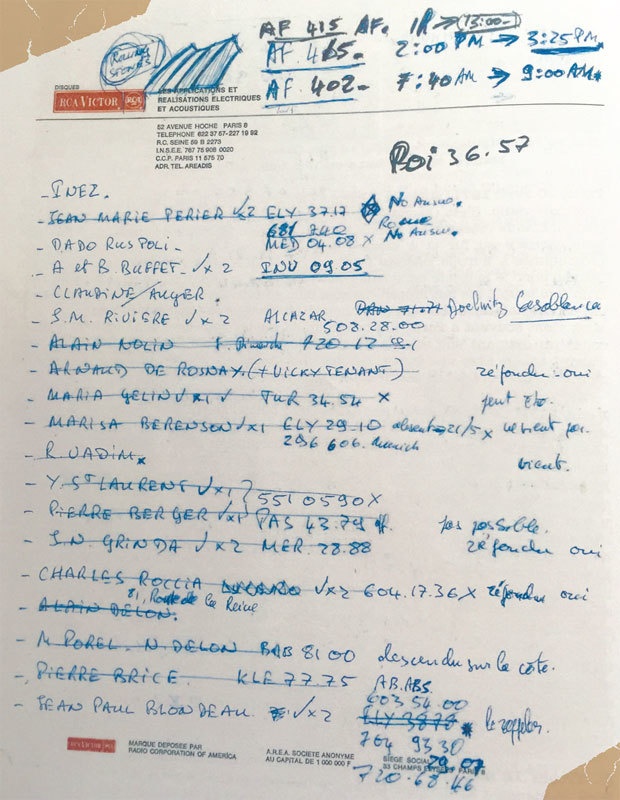 AF 415 AF. 1R → (13:00-)
ROLLING STONES
AF. 465. 2:00 PM → 3:25 PM.
AF. 402- 7:40 AM → 9:00 AM.
DISQUES
RCA VICTOR RCA
LES APPLICATIONS ET
REALISATIONS ELECTRIQUES
ET ACOUSTIQUES
52 AVENUE HOCHE PARIS 8
TELEPHONE 622 37 57-227 19 92
R.C. SEINE 59 B 2273
I.N.S.E.E. 767 75 908 0020
C.C.P. PARIS 11 575 70
ADR. TEL. AREADIS
Poi 36.57
- INEZ.
- JEAN MARIE PERIER √x2 ELY 37.17 No Answ.
681 740 Rome
- DADO RUSPOLI - MED 04.08 x No Answ.
- A et B. BUFFET - √x 2 INV 09 05
- CLAUDINE AUGER.
- J.M. RIVIÈRE √x 2 ALCAZAR Casablanca
508.28.00
- ALAIN NOLIN
- ARNAUD DE ROSNAY (+ VICKY TENANT) répondu - oui
- MARIA GELIN √x1 √ TUR 34.54 x peut etr.
- MARISA BERENSON √x1 ELY 29.10 absent → 21/5 x
296 606. Munich
- R VADIM x vient.
- Y. St LAURENT √x1 } 551 0590 X
- PIERRE BERGER √x1 PAS 43.79 pas possible.
- J.N GRINDA √x2 MER. 28.88 répondu oui
- CHARLES ROCCIA √x2 604.17.36 X répondu oui
81, Route de la Reine
- ALAIN DELON.
- M POREL. N. DELON BAB 81 00 descendu sur la côte.
- PIERRE BRICE. KLE 77.75 AB.ABS.
603 54.00
- JEAN PAUL BLONDEAU √x2 ELY 3878 * le rappeler.
704 93 30
29.07
720.68.46
RCA VICTOR
MARQUE DEPOSEE PAR
RADIO CORPORATION OF AMERICA
A.R.E.A. SOCIETE ANONYME
AU CAPITAL DE 1 000 000 F
SIEGE SOCIAL
33 CHAMPS ELYSEES PARIS 8